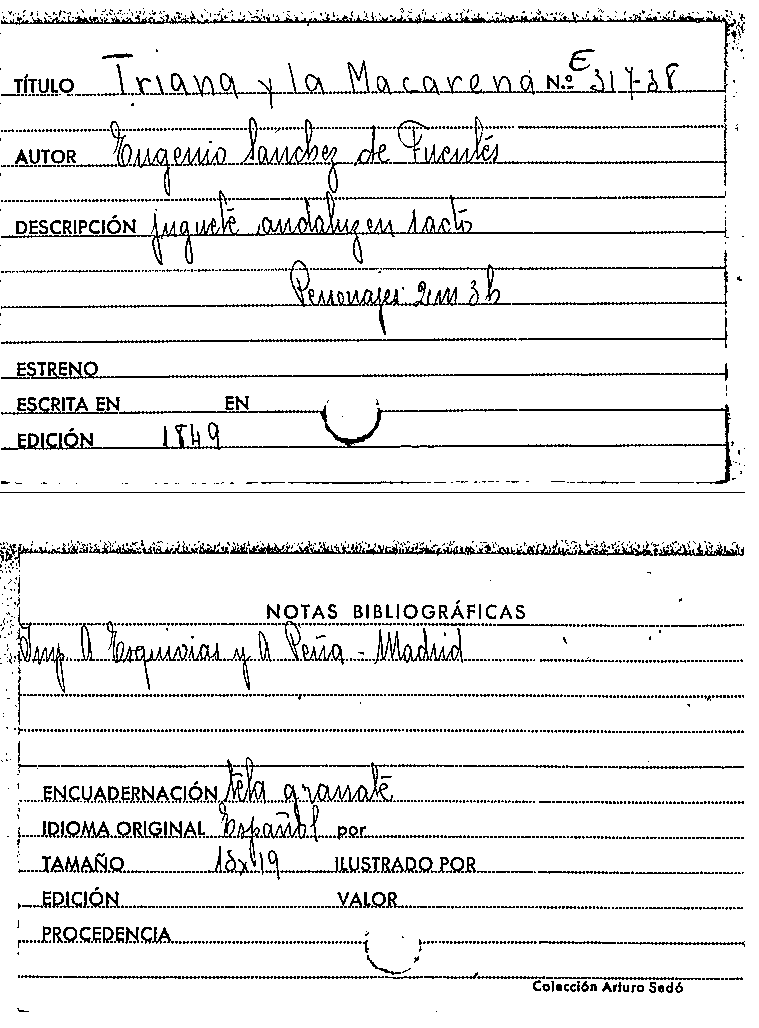 TÍTULO Triana y la Macarena N.º E 317-38
AUTOR Eugenio Sanchez de Fuentes
DESCRIPCIÓN juguete andaluz en 1 acto
Personajes 2m 3h
ESTRENO
ESCRITA EN EN
EDICIÓN 1849
NOTAS BIBLIOGRÁFICAS
Imp A Esquivias y A Peña - Madrid
ENCUADERNACIÓN tela granate
IDIOMA ORIGINAL Español por
TAMAÑO 15x19 ILUSTRADO POR
EDICIÓN VALOR
PROCEDENCIA
Colección Arturo Sedó